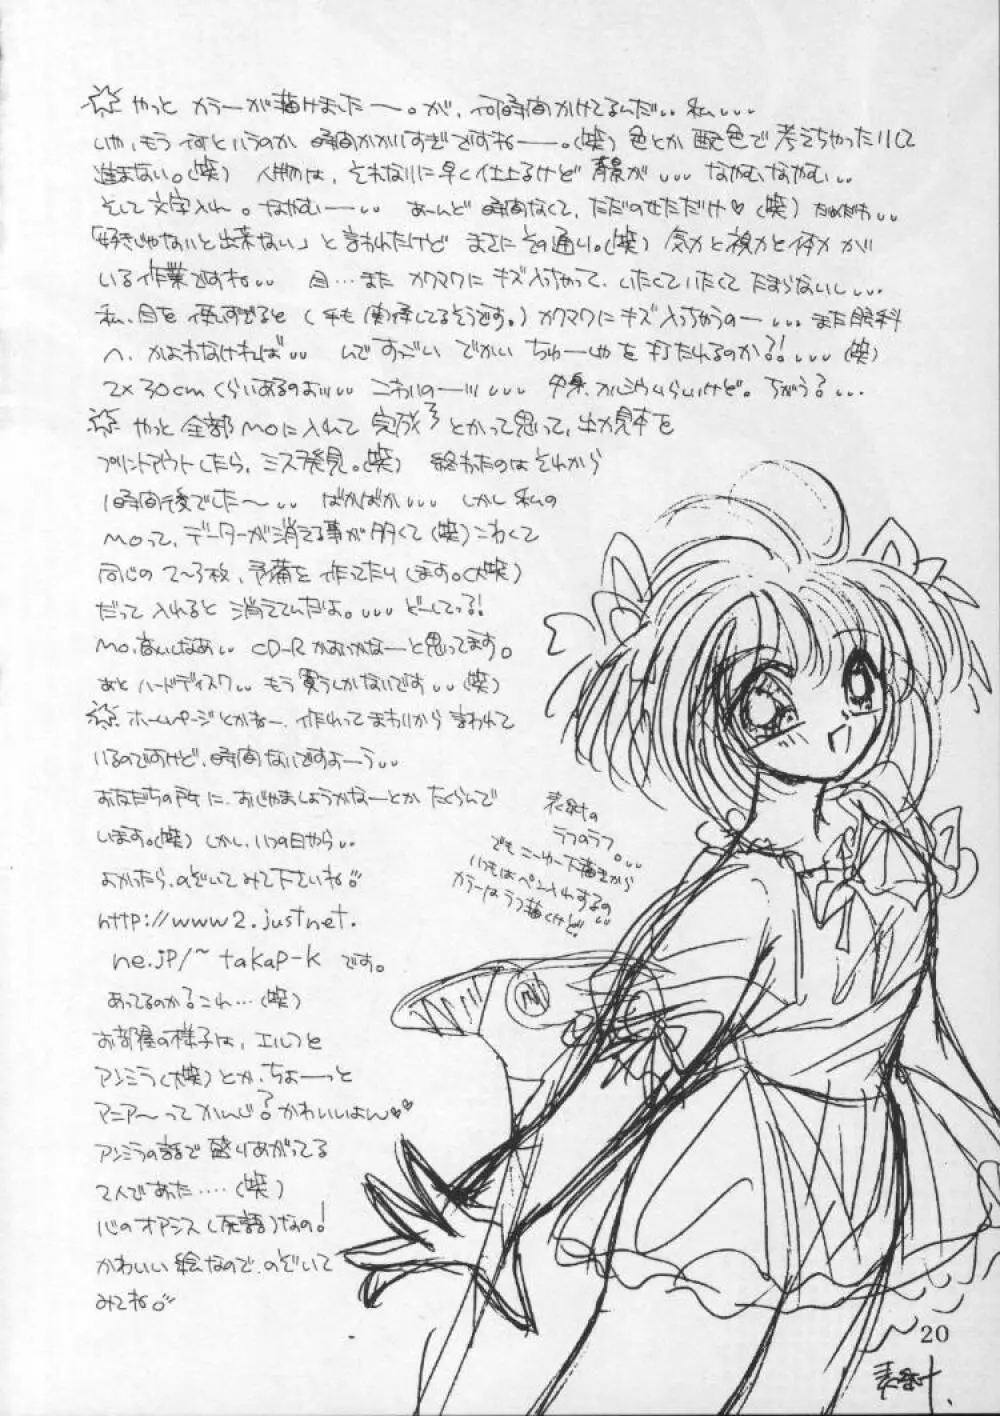 ☆やっと カラーが描けました〜。が、何時間かけてるんだ‥私‥‥
いや、もう何というのか 時間かかりすぎですねー。(笑) 色とか配色で考えちゃったりして
進まない。(笑) 人物は、それなりに早く仕上るけど 背景が‥‥なやむなやむ‥
そして文字入れ。なやむー‥ あーんど 時間なくて、ただのせただけ♥(笑) だめだわ‥
「好きじゃないと出来ない」と言われたけど まさにその通り。(笑) 気力と視力と体力が
いる作業ですね‥ 目…また カクマクにキズ入っちゃって、いたくていたくて たまらないし‥‥
私、目を使いすぎると(手も関係してるそうです。)カクマクにキズ入っちゃうのー‥‥また眼科
へ、かよわなければ‥ んで すっごい でかい ちゅーしゃを打たれるのか?!‥‥(笑)
2×30cmくらいあるのよ‥‥ こわいの〜‥‥ 中身、カルシウムらしいけど。ちがう?…
☆やっと 全部MOに入れて 完成 とかって思って、出力見本を
プリントアウトしたら、ミス発見。(笑) 終わったのは それから
1時間後でした〜‥ ばかばか‥‥ しかし 私の
MOって、データーが消える事が多くて(笑)こわくて
同じの2〜3枚、予備を作ってたりします。(大笑)
だって 入れると 消えてんだよ。‥‥どーしてっ?!
MO、高いしなあ‥ CD-R かおいかなーと思ってます。
あと ハードディスク‥ もう買うしかないです‥(笑)
☆ホームページとかねー、作れってまわりから言われて
いるのですけど、時間ないですよーう‥
お友だちの所に、おじゃましようかなーとか たくらんで
います。(笑) しかし、いつの日やら‥
よかったら、のぞいてみて下さいね
http://www2.justnet.
ne.jp/~takap-k です。
あってるのか?これ…(笑)
お部屋の様子は、エルフと
アンミラ(大笑)とか、ちょーっと
マニア〜ってかんじ?かわいいよん♥♥
アンミラの話で盛りあがってる
2人であった……(笑)
心のオアシス(死語)なの!
かわいい絵なので、のぞいて
みてね
表紙の
ラフのラフ。‥
でもこーゆー下描きから
いつもはペン入れするの
カラーはラフ描くけど。
20
表紙